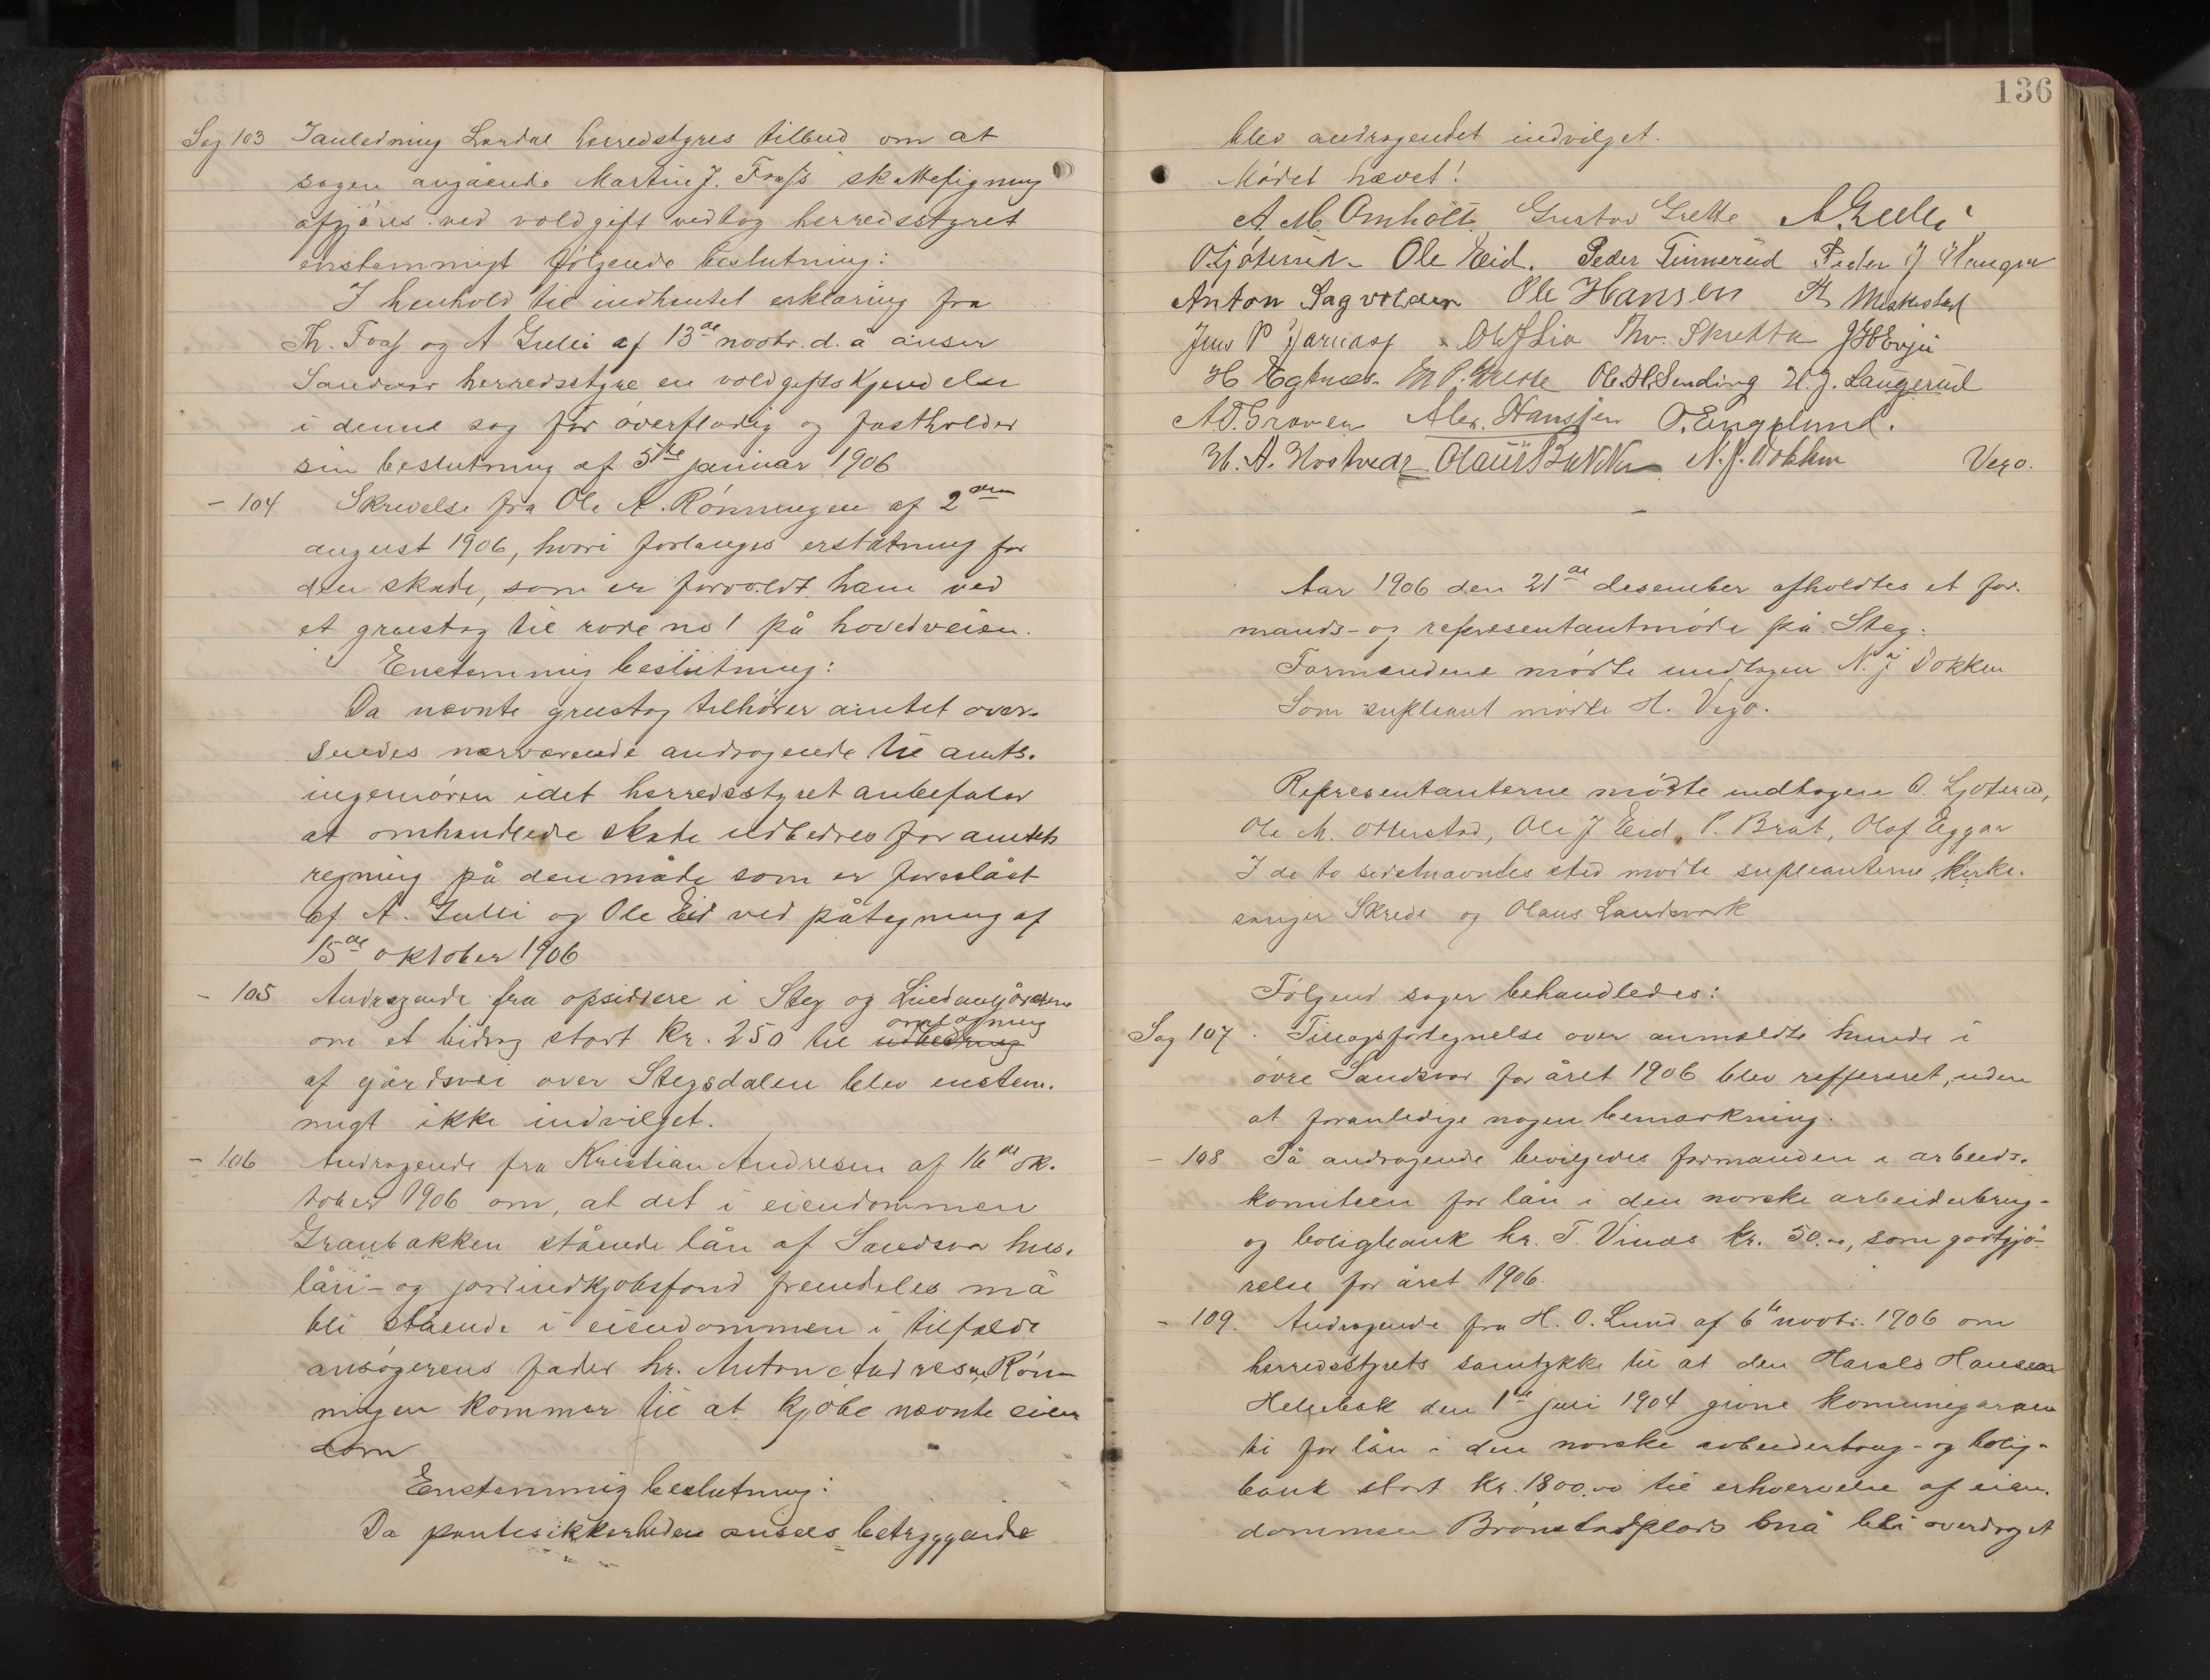 Sag 103 Ianledning Lardal herredstyres tilbud om at
sagen angående Martin J. Foss's skattefigning
afgjöres ved voldgift vedtog herredsstyret
enstemmigt følgende beslutning:
I henhold til indhentet erklæring fra
Th. Foss og A Gulli af 13de novbr. d. å anser
Sandsvær herredsstyre en voldgiftskjendelse
i denne sag for overflødig og fastholder
sin beslutning af 5te januar 1906
- 104 Skrivelse fra Ole A. Rönningen af 2den
august 1906, hvori forlanges erstatning for
den skade, som er forvoldt ham ved
et grustag til rode no 1 på hovedveien.
Enstemmig beslutning:
Da nævnte grustag tilhører amtet over-
sendes nærværende andragende til amts-
ingeniøren idet herredsstyret anbefaler
at omhandlede skade udbedres for amtets
regning på den måde som er foreslået
af A. Gulli og Ole Eid ved påtegning af
15de oktober 1906
- 105 Andragende fra opsiddere i Steg og
omlægning
om et bidrag stort Kr. 250 til udbedring
af gårdsvei over Stegsdalen blev enstem-
migt ikke indvilget.
- 106 Andragende fra Kristian Andresen af 16de ok-
tober 1906 om, at det i eiendommen
Granbakken stående lån af Sandsvær hus-
lån- og jordindkjøbsfond fremdeles må
bli stående i eiendommen i tilfælde
ansøgerens fader hr. Anton Andresen Rön-
ningen kommer til at kjøbe nævnte eien
dom
Enstemmig beslutning:
Da pantesikkerheden ansees betryggende
136
blev andragendet indvilget.
Mödet hævet!
A. M. Omholt Gustav Grette A. Gulli
O Ljöterud Ole Eid. Peder Tinnerud Peder J Haugen
Anton Sagvolden Ole Hansen
Jens P Ole J Lia Thv. Skretta J H Evju
H Ole H. Sending H. J. Langerud
A. T. Graven Alex. Hanssen O. Englund.
H. A. Olaus Bakken N. J. Dokken Vego.
Aar 1906 den 21de desember afholdtes et for-
mands- og representantmöde på Steg.
Formændene mödte undtagen N. J Dokken
Som supleant mödte H. Vego.
Representanterne mödte undtagen O. Ljøterud,
Ole M. Otterstad, Ole J Eid, P. Bråt, Olaf Eggar
I de to sidstnævntes sted mødte supleanterne kirke-
sanger Skrede og Olaus Landsverk
Følgend sager behandledes:
Sag 107. Tillægsfortegnelse over anmeldte hunde i
övre Sandsvær for året 1906 blev reffereret, uden
at foranledige nogen bemærkning.
- 108 På andragende bevilgedes formanden i arbeids-
komiteen for lån i den norske arbeiderbrug-
og boligbank hr. T. Vinæs kr. 50.00, som godtgjö-
relse for året 1906.
- 109. Andragende fra H. O. Lund af 6te novbr. 1906 om
herredsstyrets samtykke til at den Harals Hansen
Helsebak den 1ste juli 1904 givne komunegaran
ti for lån i den norske arbeiderbrug- og bolig-
bank stort kr. 1800.00 til erhvervelse af eien-
dommen Brönstadplads må bli overdraget